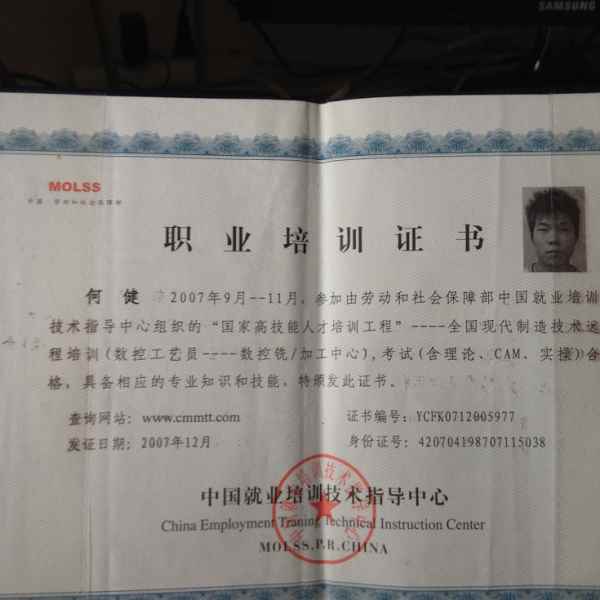 SAMSUNG
MOLSS
中国 劳动和社会保障部
职业培训证书
何健 2007年9月--11月,参加由劳动和社会保障部中国就业培训
技术指导中心组织的“国家高技能人才培训工程”----全国现代制造技术远
程培训(数控工艺员----数控铣/加工中心),考试(含理论、CAM、实操)合
格,具备相应的专业知识和技能,特颁发此证书。
查询网站: www.cmmtt.com 证书编号: YCFK0712005977
发证日期: 2007年12月 身份证号: 420704198707115038
中国就业培训技术指导中心
China Employment Training Technical Instruction Center
MOLSS.P.R.CHINA